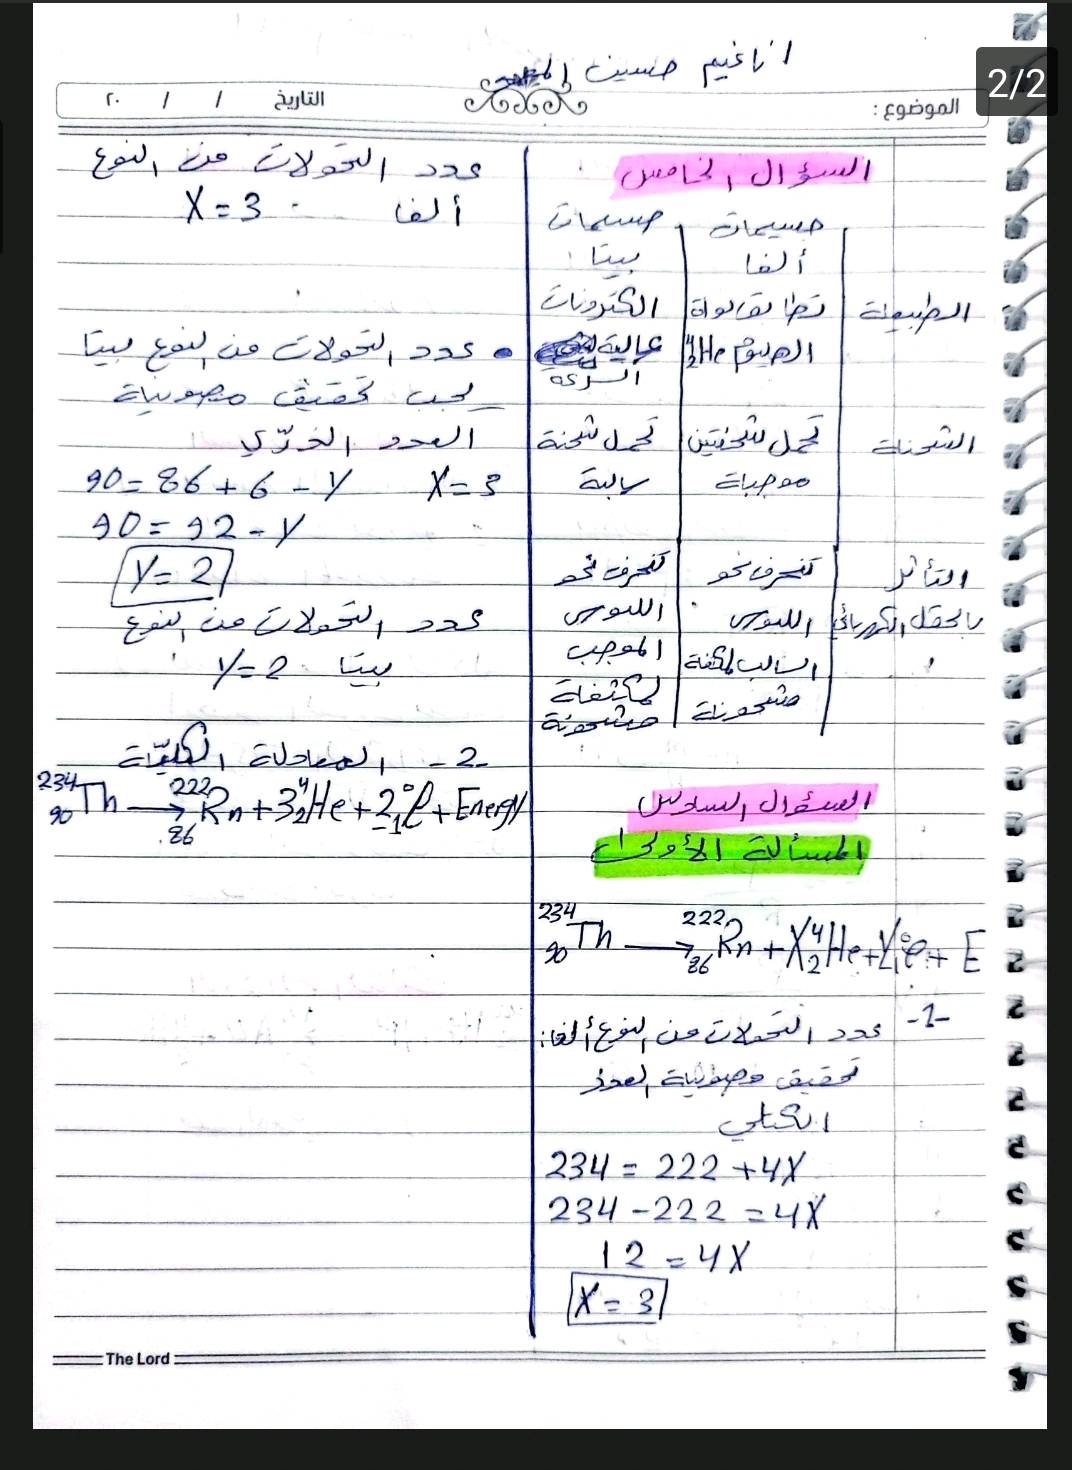 2/2
انا غيم حسين
الموضوع :
التاريخ / / ٢٠
السؤال الخامس
جسيمات ألفا
جسيمات بيتا
الطبيعة
تطابق نواة الهليوم ⁴₂He
الكترونات عالية السرعة
الشحنة
تحمل شحنتين موجبة
تحمل شحنة سالبة
التأثر بالحقل الكهربائي
تنحرف نحو اللبوس السالب لمكثفة مشحونة
تنحرف نحو اللبوس الموجب لمكثفة مشحونة
السؤال السادس
المسألة الأولى
²³⁴₉₀Th → ²²²₈₆Rn + X ⁴₂He + Y ⁰₋₁e + E
-1- عدد التحولات من النوع ألفا:
تحقيق مصونية العدد
الكتلي
234 = 222 + 4X
234 - 222 = 4X
12 = 4X
X = 3
عدد التحولات من النوع
ألفا X = 3
• عدد التحولات من النوع بيتا
يجب تحقيق مصونية
العدد الذرّي
X = 3 90 = 86 + 6 - Y
90 = 92 - Y
Y = 2
عدد التحولات من النوع
بيتا Y = 2
-2- المعادلة الكليّة
²³⁴₉₀Th → ²²²₈₆Rn + 3 ⁴₂He + 2 ⁰₋₁e + Energy
The Lord